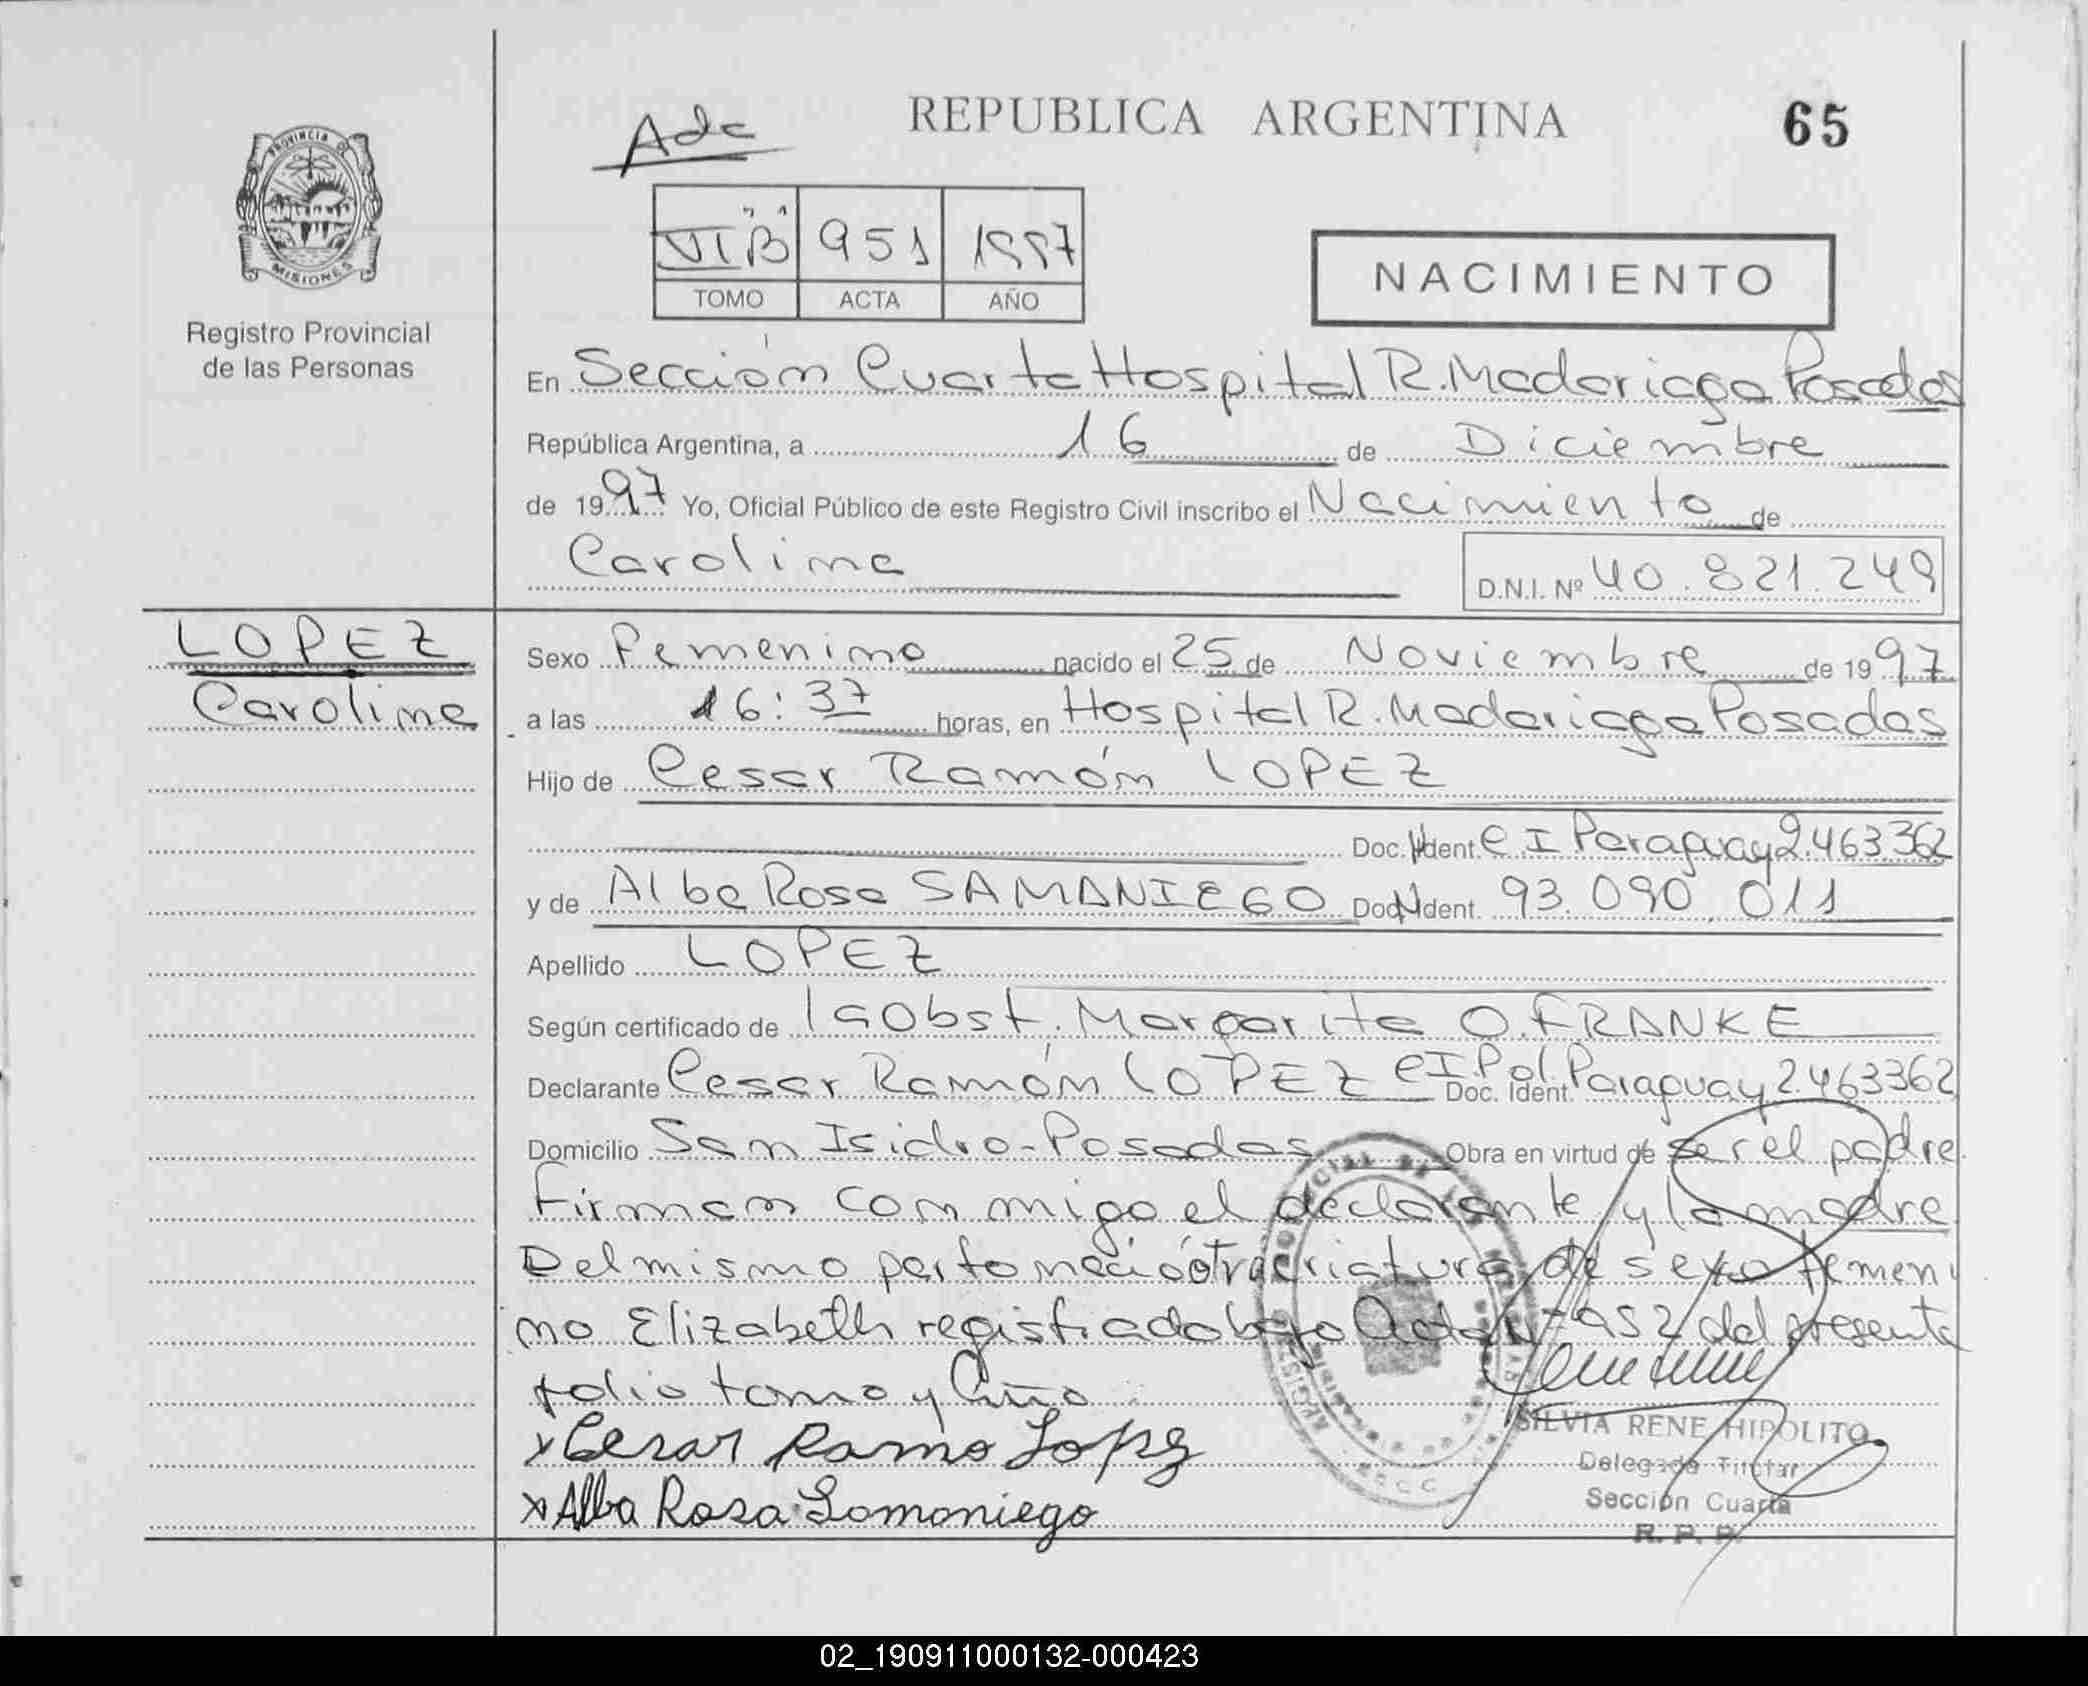 Adc
REPUBLICA ARGENTINA
65
PROVINCIA DE
MISIONES
Registro Provincial
de las Personas
VI "B" 951 1997
TOMO ACTA AÑO
NACIMIENTO
En Sección Cuarta Hospital R. Madariaga Posadas
República Argentina, a 16 de Diciembre
de 1997 Yo, Oficial Público de este Registro Civil inscribo el Nacimiento de
Carolina
D.N.I. Nº 40.821.249
LOPEZ
Carolina
Sexo Femenino nacido el 25 de Noviembre de 1997
a las 16:37 horas, en Hospital R. Madariaga Posadas
Hijo de Cesar Ramón LOPEZ
Doc. Ident. C I Paraguay 2.463.362
y de Alba Rosa SAMANIEGO Doc. Ident. 93.090.011
Apellido LOPEZ
Según certificado de la Obst. Margarita O. FRANKE
Declarante Cesar Ramón LOPEZ Doc. Ident. C I. Pol. Paraguay 2.463362
Domicilio San Isidro - Posadas Obra en virtud de ser el padre
Firman conmigo el declarante y la madre
Del mismo parto nació otra criatura de sexo femeni
no Elizabeth registrada bajo Acta Nº 952 del presente
folio tomo y Año.
x Cesar Ramo Lopez
x Alba Rosa Somoniego
SILVIA RENE HIPOLITO
Delegada Titular
Sección Cuarta
R. P. P.
02_190911000132-000423